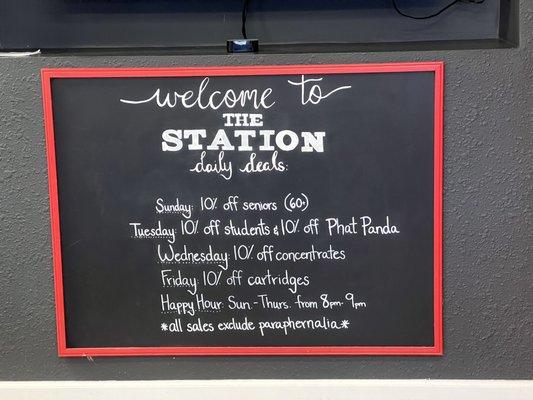 welcome to
THE
STATION
daily deals:
Sunday: 10% off seniors (60+)
Tuesday: 10% off students & 10% off Phat Panda
Wednesday: 10% off concentrates
Friday: 10% off cartridges
Happy Hour: Sun.-Thurs. from 8pm-9pm
*all sales exclude paraphernalia*